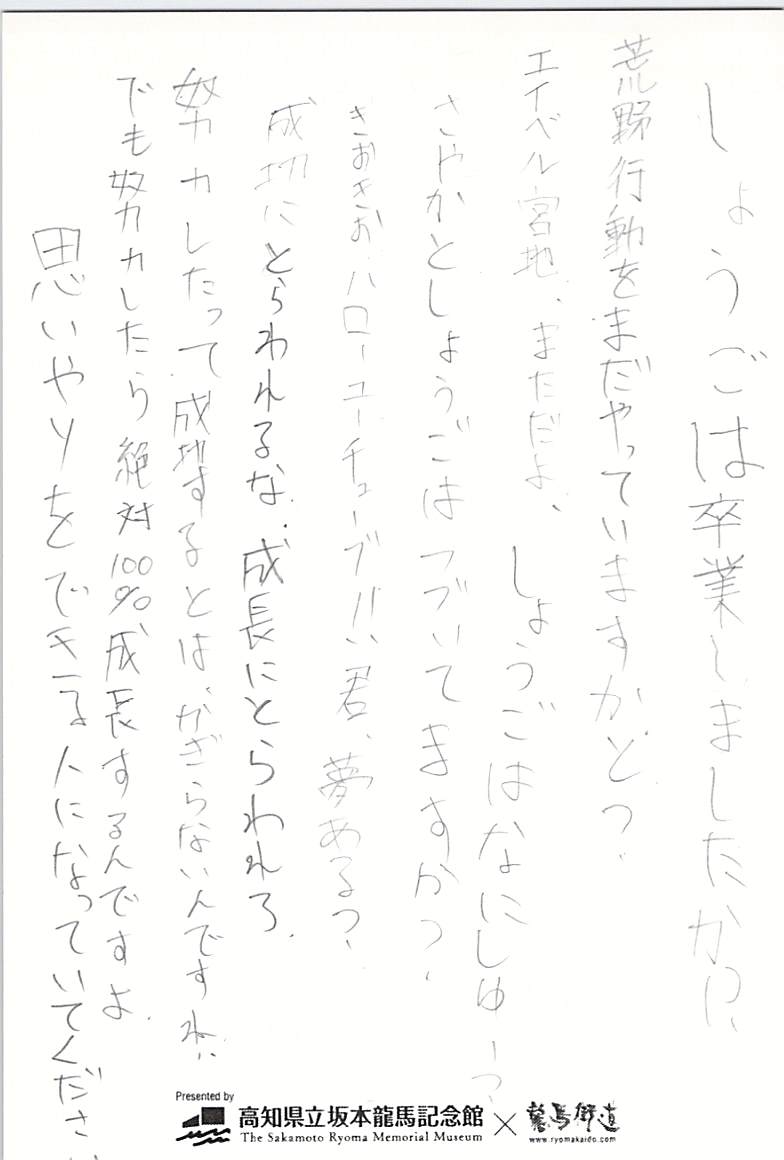 しょうごは卒業しましたか!?
荒野行動をまだやっていますかど?
エイベル宮地、まだだよ、しょうごはなにしゅー?
さやかとしょうごはつづいてますか?
きおきお、ハローユーチューブ!!い君、夢ある?
成功にとらわれるな、成長にとらわれろ。
努力したって成功するとは、かぎらないんですね。
でも努力したら絶対100%成長するんですよ。
思いやりをできる人になっていてください
Presented by
高知県立坂本龍馬記念館
The Sakamoto Ryoma Memorial Museum
×
龍馬街道
www.ryomakaido.com